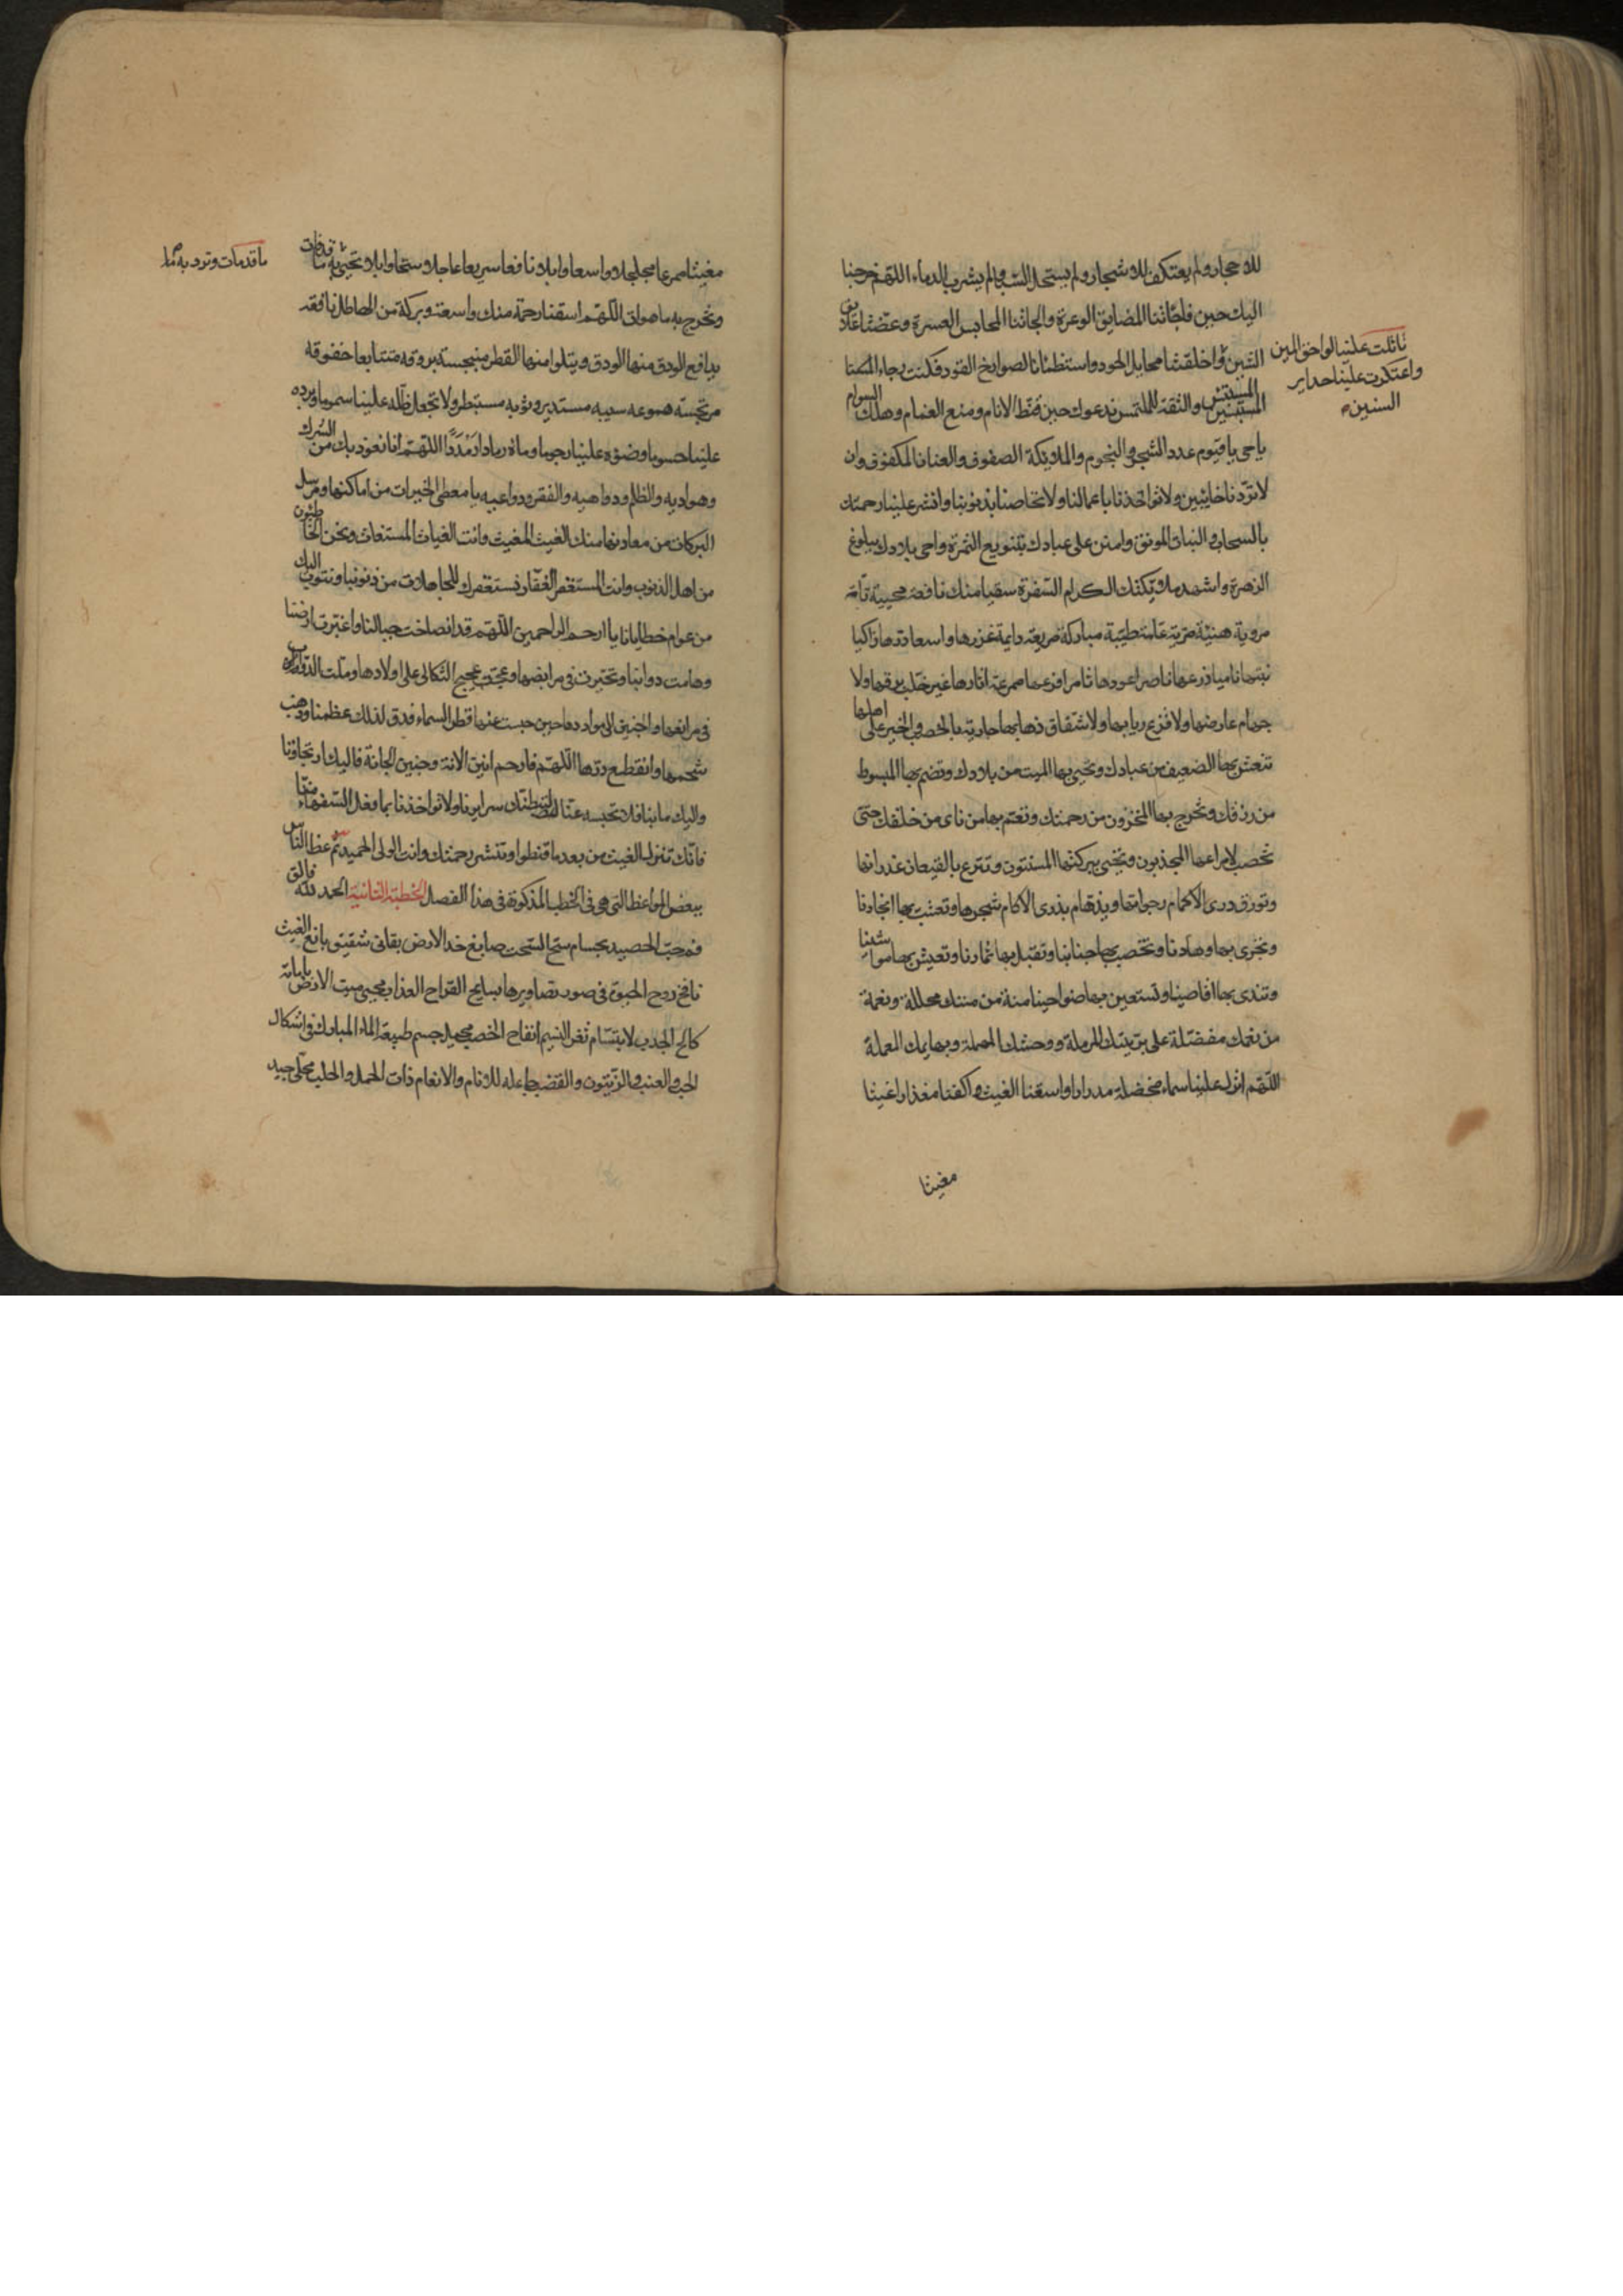 للاحجار ولم يعتكف للاشجار ولم يستحل السبا ولم يشرب الدماء اللهم خرجنا
اليك حين فاجأتنا المضايق الوعرة والجأتنا المحابس العسرة وعضتنا علايق
الشين واخلفتنا مخايل الجود واستظمأنا لصوارخ القود فكنت رجاء المبتئس
تاثلت علينا لواحق المين
واعتكرت علينا حدابير
السنين
والثقة للملتمس ندعوك حين قنط الانام ومنع الغمام وهلك السوام
ياحى ياقيوم عدد الشجر والنجوم والملايكة الصفوف والعنان المكفوف وان
لا تردنا خايبين ولا تواخذنا باعمالنا ولا تحاصنا بذنوبنا وانشر علينا رحمتك
بالسحاب والنبات المونق وامنن على عبادك بتنويع الثمرة واحى بلادك ببلوغ
الزهرة واشهد ملايكتك الكرام السفرة سقيا منك نافعة محيية تامة
مروية هنيئة مرية عامة طيبة مباركة مريعة دايمة غزرها واسعا درها زاكيا
نبتها ناميا زرعها ناضرا عودها ثامرا فرعها ممرعة اثارها غير خلب برقها ولا
جهام عارضها ولا قزع ربابها ولا شفان ذهابها جارية بالخصب والخير على اهلها
تنعش بها الضعيف من عبادك وتحيى بها الميت من بلادك وتضم بها المبسوط
من رزقك وتخرج بها المخزون من رحمتك وتعم بها من نأى من خلقك حتى
تخصب لامراعها المجدبون وتحيى ببركتها المسنتون وتترع بالقيعان غدرانها
وتورق ذرى الاكمام رجواتها ويدهام بذرى الاكام شجرها وتعشب بها انجادنا
وتجرى بها وهادنا وتخصب بها جنابنا وتقبل بها ثمارنا وتعيش بها مواشينا
وتندى بها اقاصينا وتستعين بها ضواحينا منة من مننك مجللة ونعمة
من نعمك مفضلة على بريتك المرملة ووحشك المهملة وبهايمك المعملة
اللهم انزل علينا سماء مخضلة مدرارا واسقنا الغيث واكفنا مغزارا غيثا
مغيثا
مغيثا ممرعا مجلجلا واسعا وابلا نافعا سريعا عاجلا وسحا وابلا تحيى به ما قد فات
ما قد مات وترد به ما
وتخرج به ما هو ات اللهم اسقنا رحمة منك واسعة وبركة من الهاطل نافعة
يدافع الودق منها الودق ويتلو منها القطر منبجسة بروقه متتابعا خفوقه
مرتجسة هموعه سيبه مستدر وثوبه مستبطر ولا تجعل ظله علينا سموما وبرده
علينا حسوما وضوءه علينا رجوما وماءه رمادا رمددا اللهم انا نعوذ بك من الشرك
وهواديه والظلم ودواهيه والفقر ودواعيه يا معطى الخيرات من اماكنها ومرسل
البركات من معادنها منك الغيث المغيث وانت الغياث المستغاث ونحن الخاطئون
من اهل الذنوب وانت المستغفر الغفار نستغفرك للجاهلات من ذنوبنا ونتوب اليك
من عوام خطايانا يا ارحم الراحمين اللهم قد انصاحت جبالنا واغبرت ارضنا
وهامت دوابنا وتحيرت فى مرابضها وعجت عجيج الثكالى على اولادها وملت التردد
فى مراتعها والحنين الى مواردها حين حبست عنها قطر السماء فدق لذلك عظمنا وذهب
شحمها وانقطع درها اللهم فارحم انين الانة وحنين الحانة فاليك ارتجاؤنا
واليك مابنا فلا تحبسه عنا لتبطنك سرايرنا ولا تواخذنا بما فعل السفهاء منا
فانك تنزل الغيث من بعد ما قنطوا وتنشر رحمتك وانت الولى الحميد ثم عظ الناس
ببعض المواعظ التى هى فى الخطب المذكورة فى هذا الفصل الخطبة الثانية الحمد لله فالق
قمح حب الحصيد بحسام سح السحب صابغ خد الارض بقانى شقيق يانع الغيث
نافخ روح الحيوة فى صور تصاويرها بسايح القراح العذاب محيى ميت الارض باماتة
كالح الجدب لابتسام ثغر النسيم انفاح الخصب محيل جسم طبيعة الماء المبارك فى اشكال
الحب والعنب والزيتون والقضب جاعله للانام والانعام ذات الحمل والحلب محلى جيد